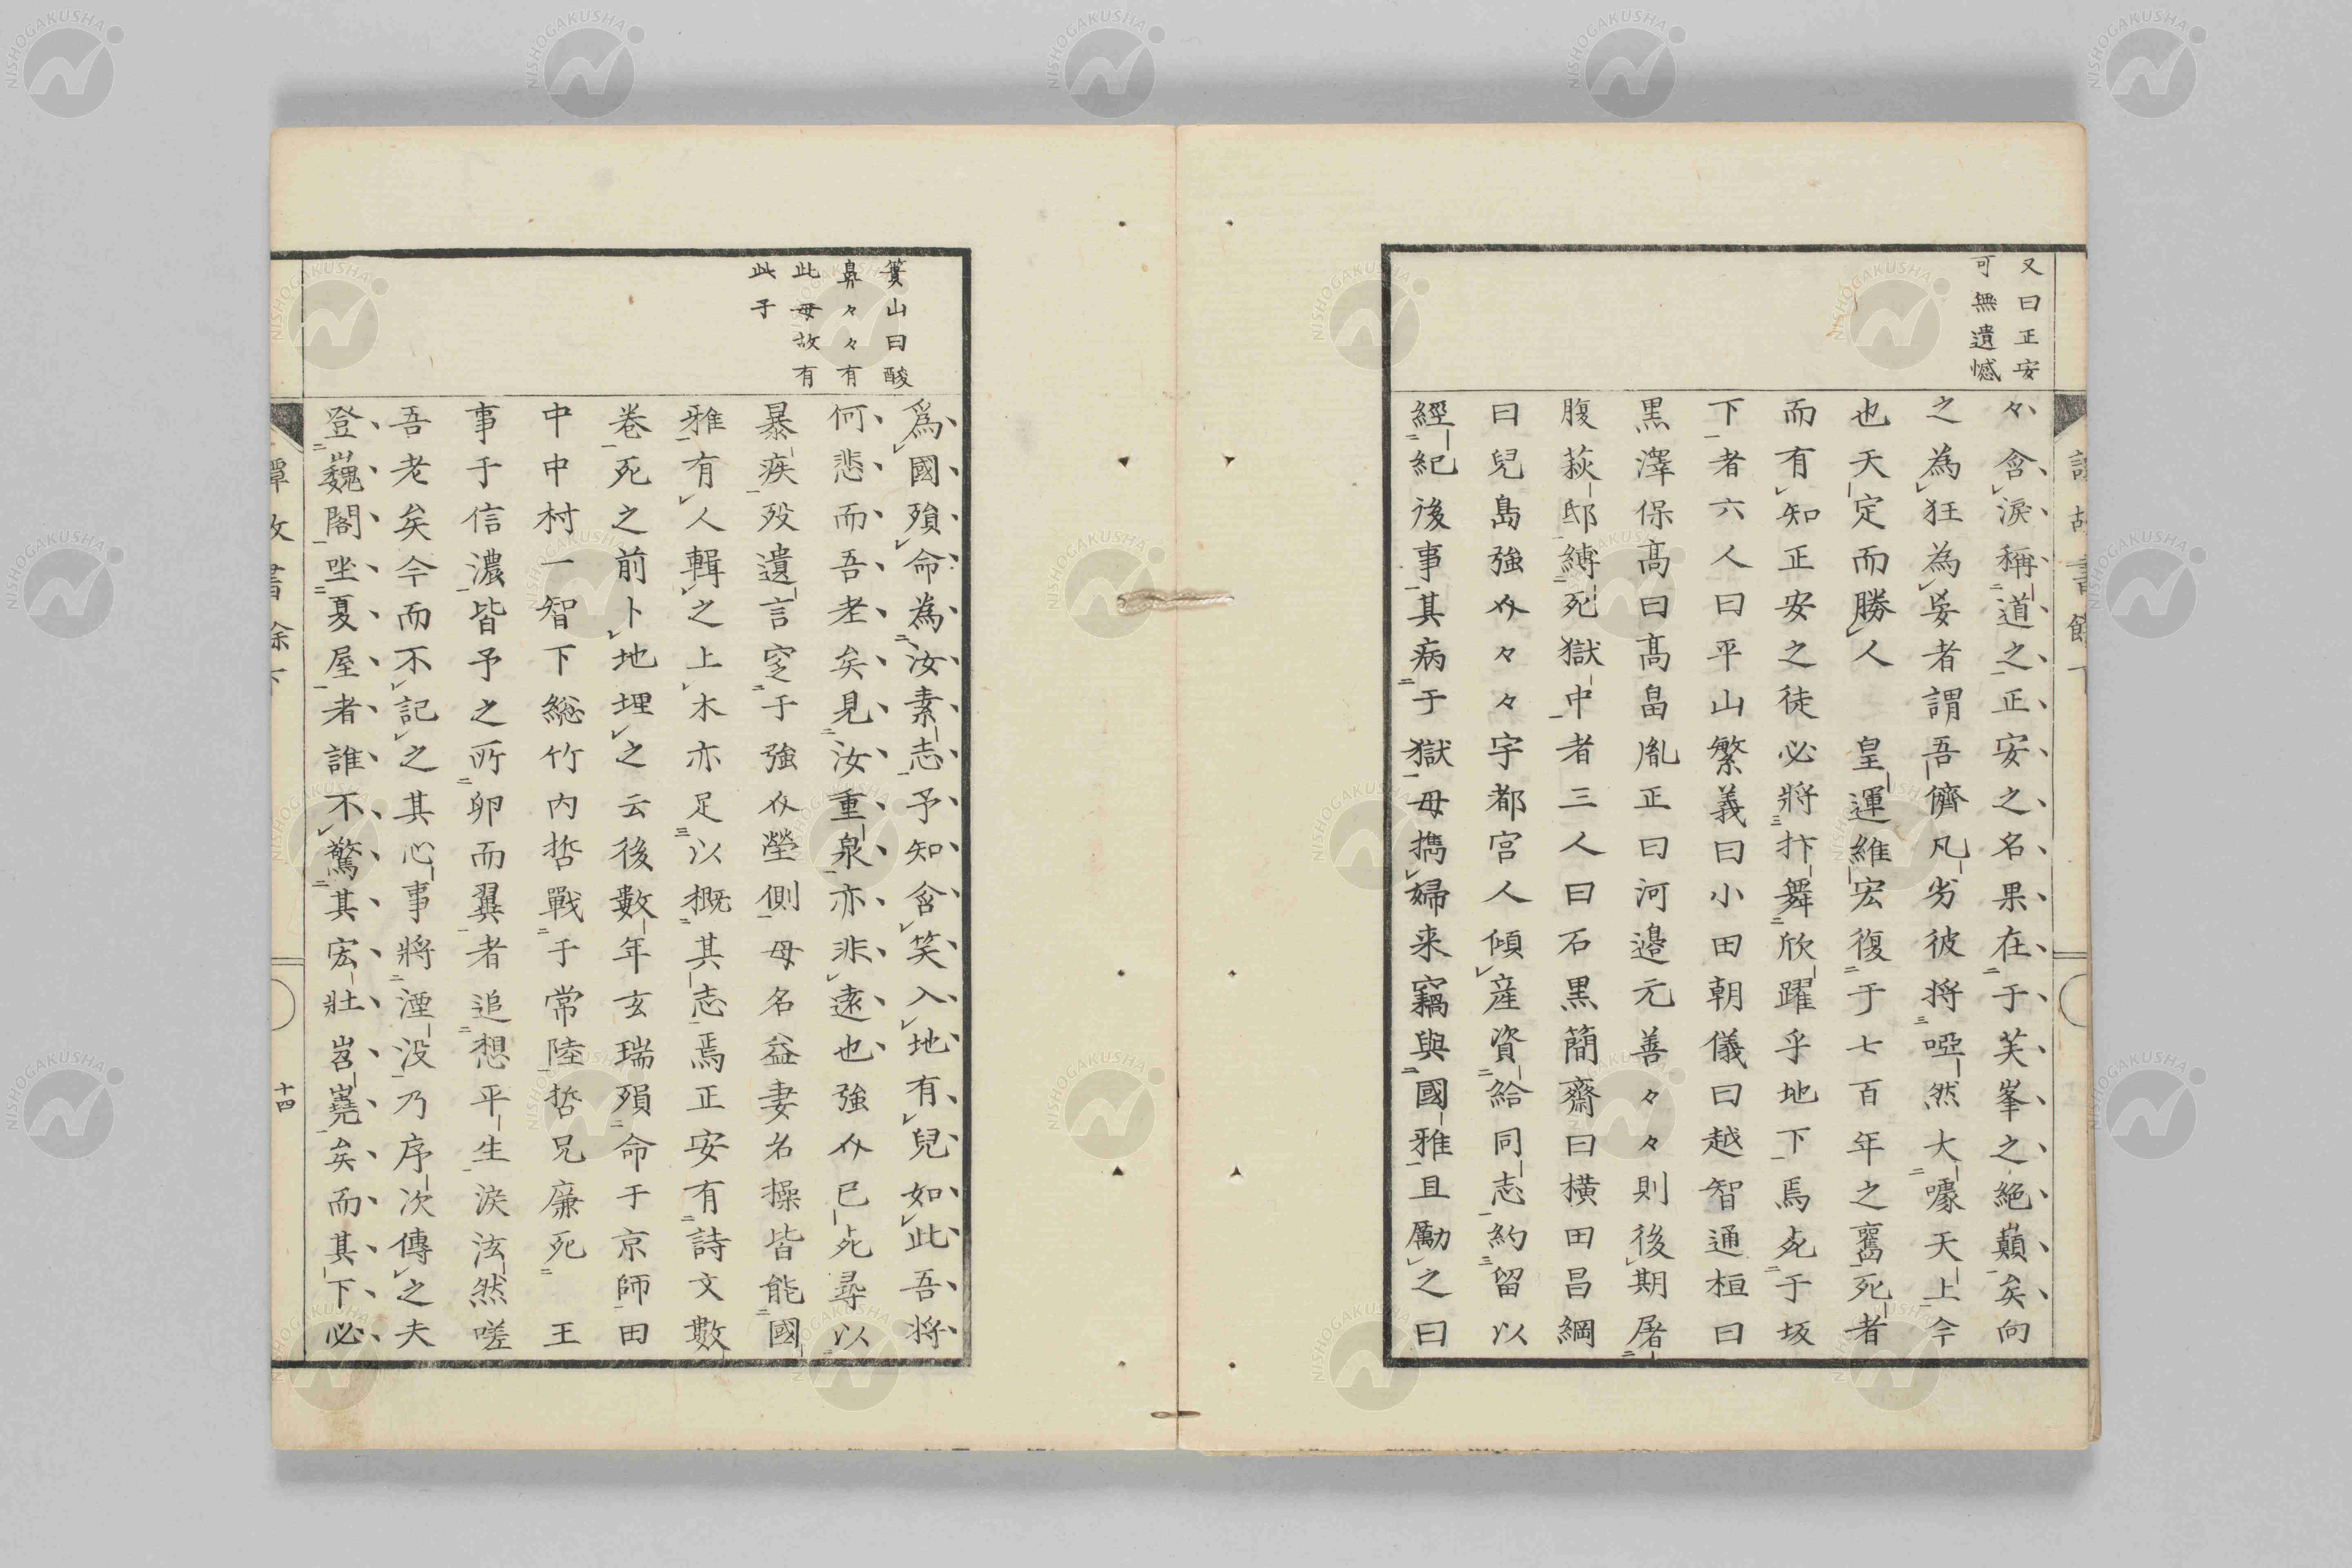 又曰正安
可無遺憾
々含淚稱道之正安之名果在于芙峯之絕巓矣向
之為狂為妄者謂吾儕凡劣彼将啞然大噱天上今
也天定而勝人　皇運維宏復于七百年之舊死者
而有知正安之徒必將抃舞欣躍乎地下焉死于坂
下者六人曰平山繁義曰小田朝儀曰越智通桓曰
黒澤保髙曰髙畠胤正曰河邉元善々々則後期屠
腹萩邸縛死獄中者三人曰石黒簡齋曰横田昌綱
曰兒島強介々々宇都宮人傾産資給同志約留以
經紀後事其病于獄母擕婦来竊與國雅且勵之曰
簣山曰酸
鼻々々有
此母故有
此子
為國殞命為汝素志予知含笑入地有兒如此吾将
何悲而吾老矣見汝重泉亦非遠也強介已死尋以
暴疾歿遺言窆于強介塋側母名益妻名操皆能國
雅有人輯之上木亦足以概其志焉正安有詩文數
卷死之前卜地埋之云後數年玄瑞殞命于京師田
中中村一智下総竹内哲戰于常陸哲兄廉死　王
事于信濃皆予之所卵而翼者追想平生淚泫然嗟
吾老矣今而不記之其心事將湮没乃序次傳之夫
登巍閣坐夏屋者誰不驚其宏壯岧嶢矣而其下必
十四
NISHOGAKUSHA